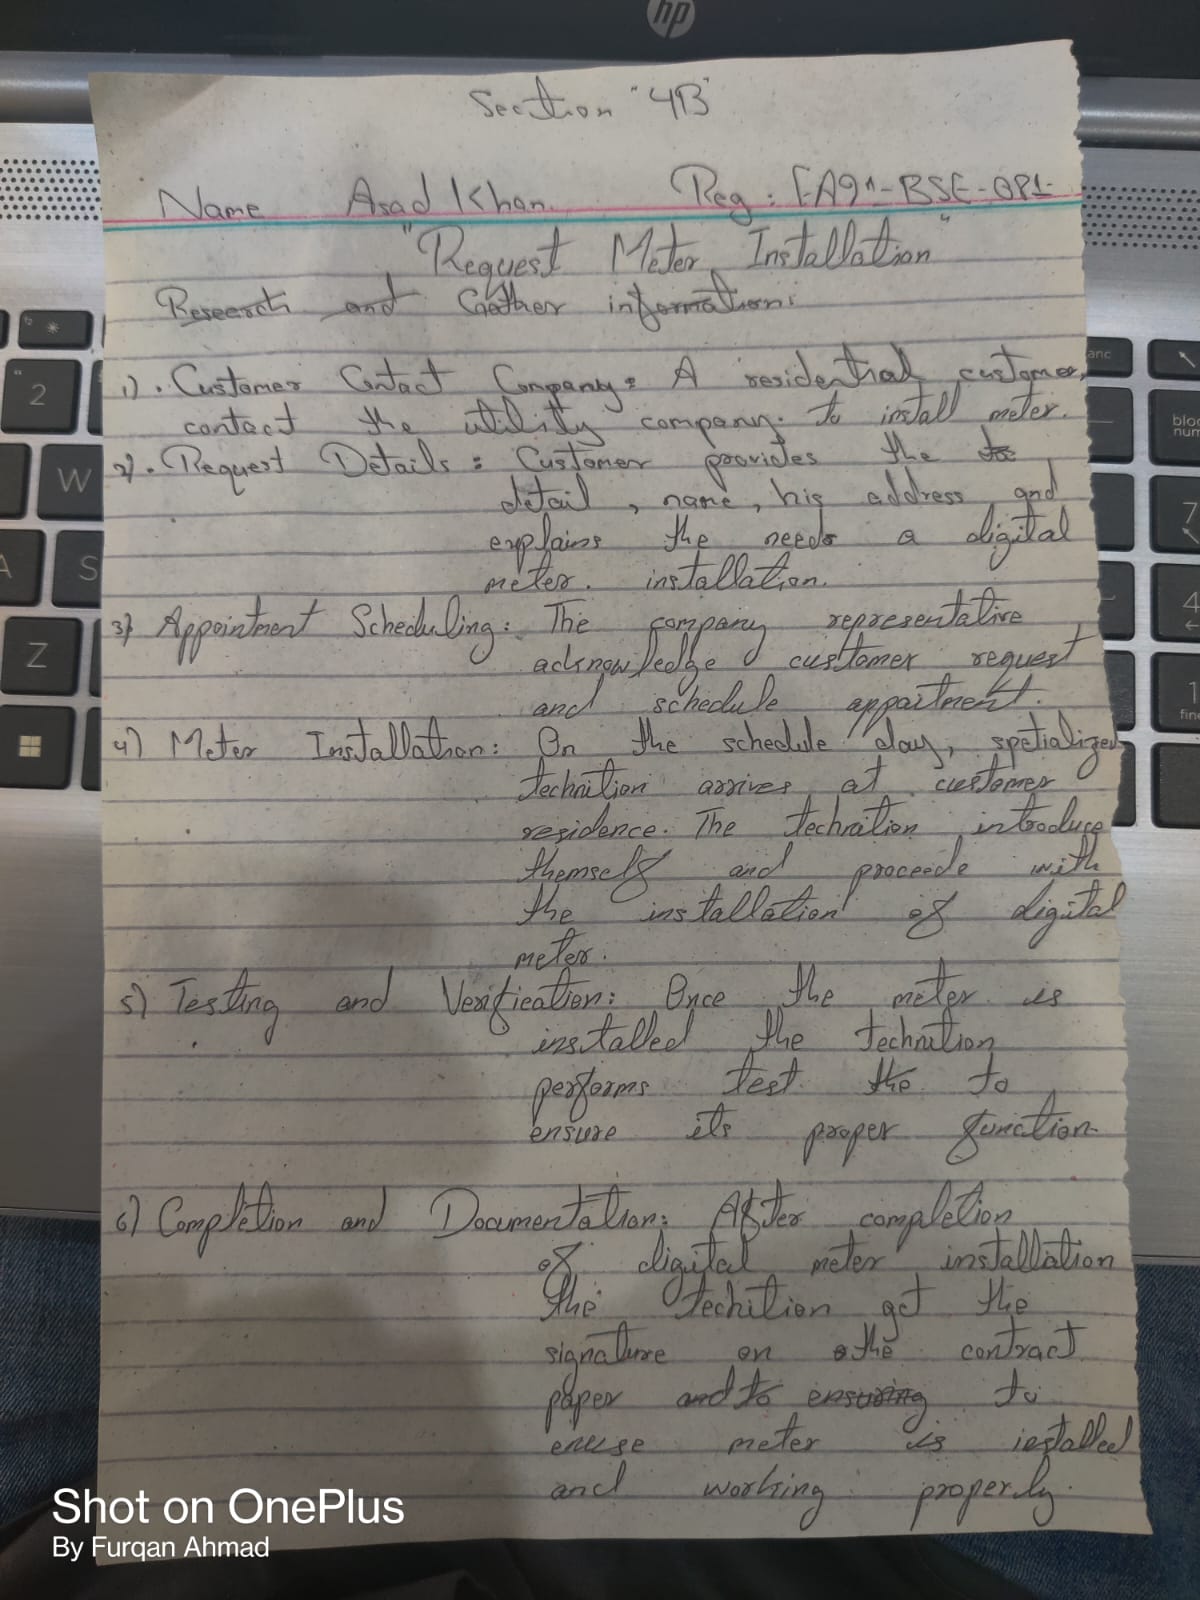 hp
Section "4B"
Name Asad Khan Reg:
"Request Meter Installation"
Research and Gather information:
1). Customer Contact Company: A residential customer
contact the utility company. to install meter.
2). Request Details: Customer provides the to
detail, name, his address and
explains the needs a digital
meter. installation.
3) Appointment Scheduling: The company representative
acknowledge customer request
and schedule appaitment.
4) Meter Installation: On the schedule day, spetialized
technition arrives at customer
residence. The technition introduce
themself and proceede with
the installation of digital
meter.
5) Testing and Verification: Once the meter is
installed the technition
performs test the to
ensure its proper function
6) Completion and Documentation: After completion
of digital meter installation
the techition get the
signature on the contract
paper and to ensuring to
enuse meter is installed
and working properly.
Shot on OnePlus
By Furqan Ahmad